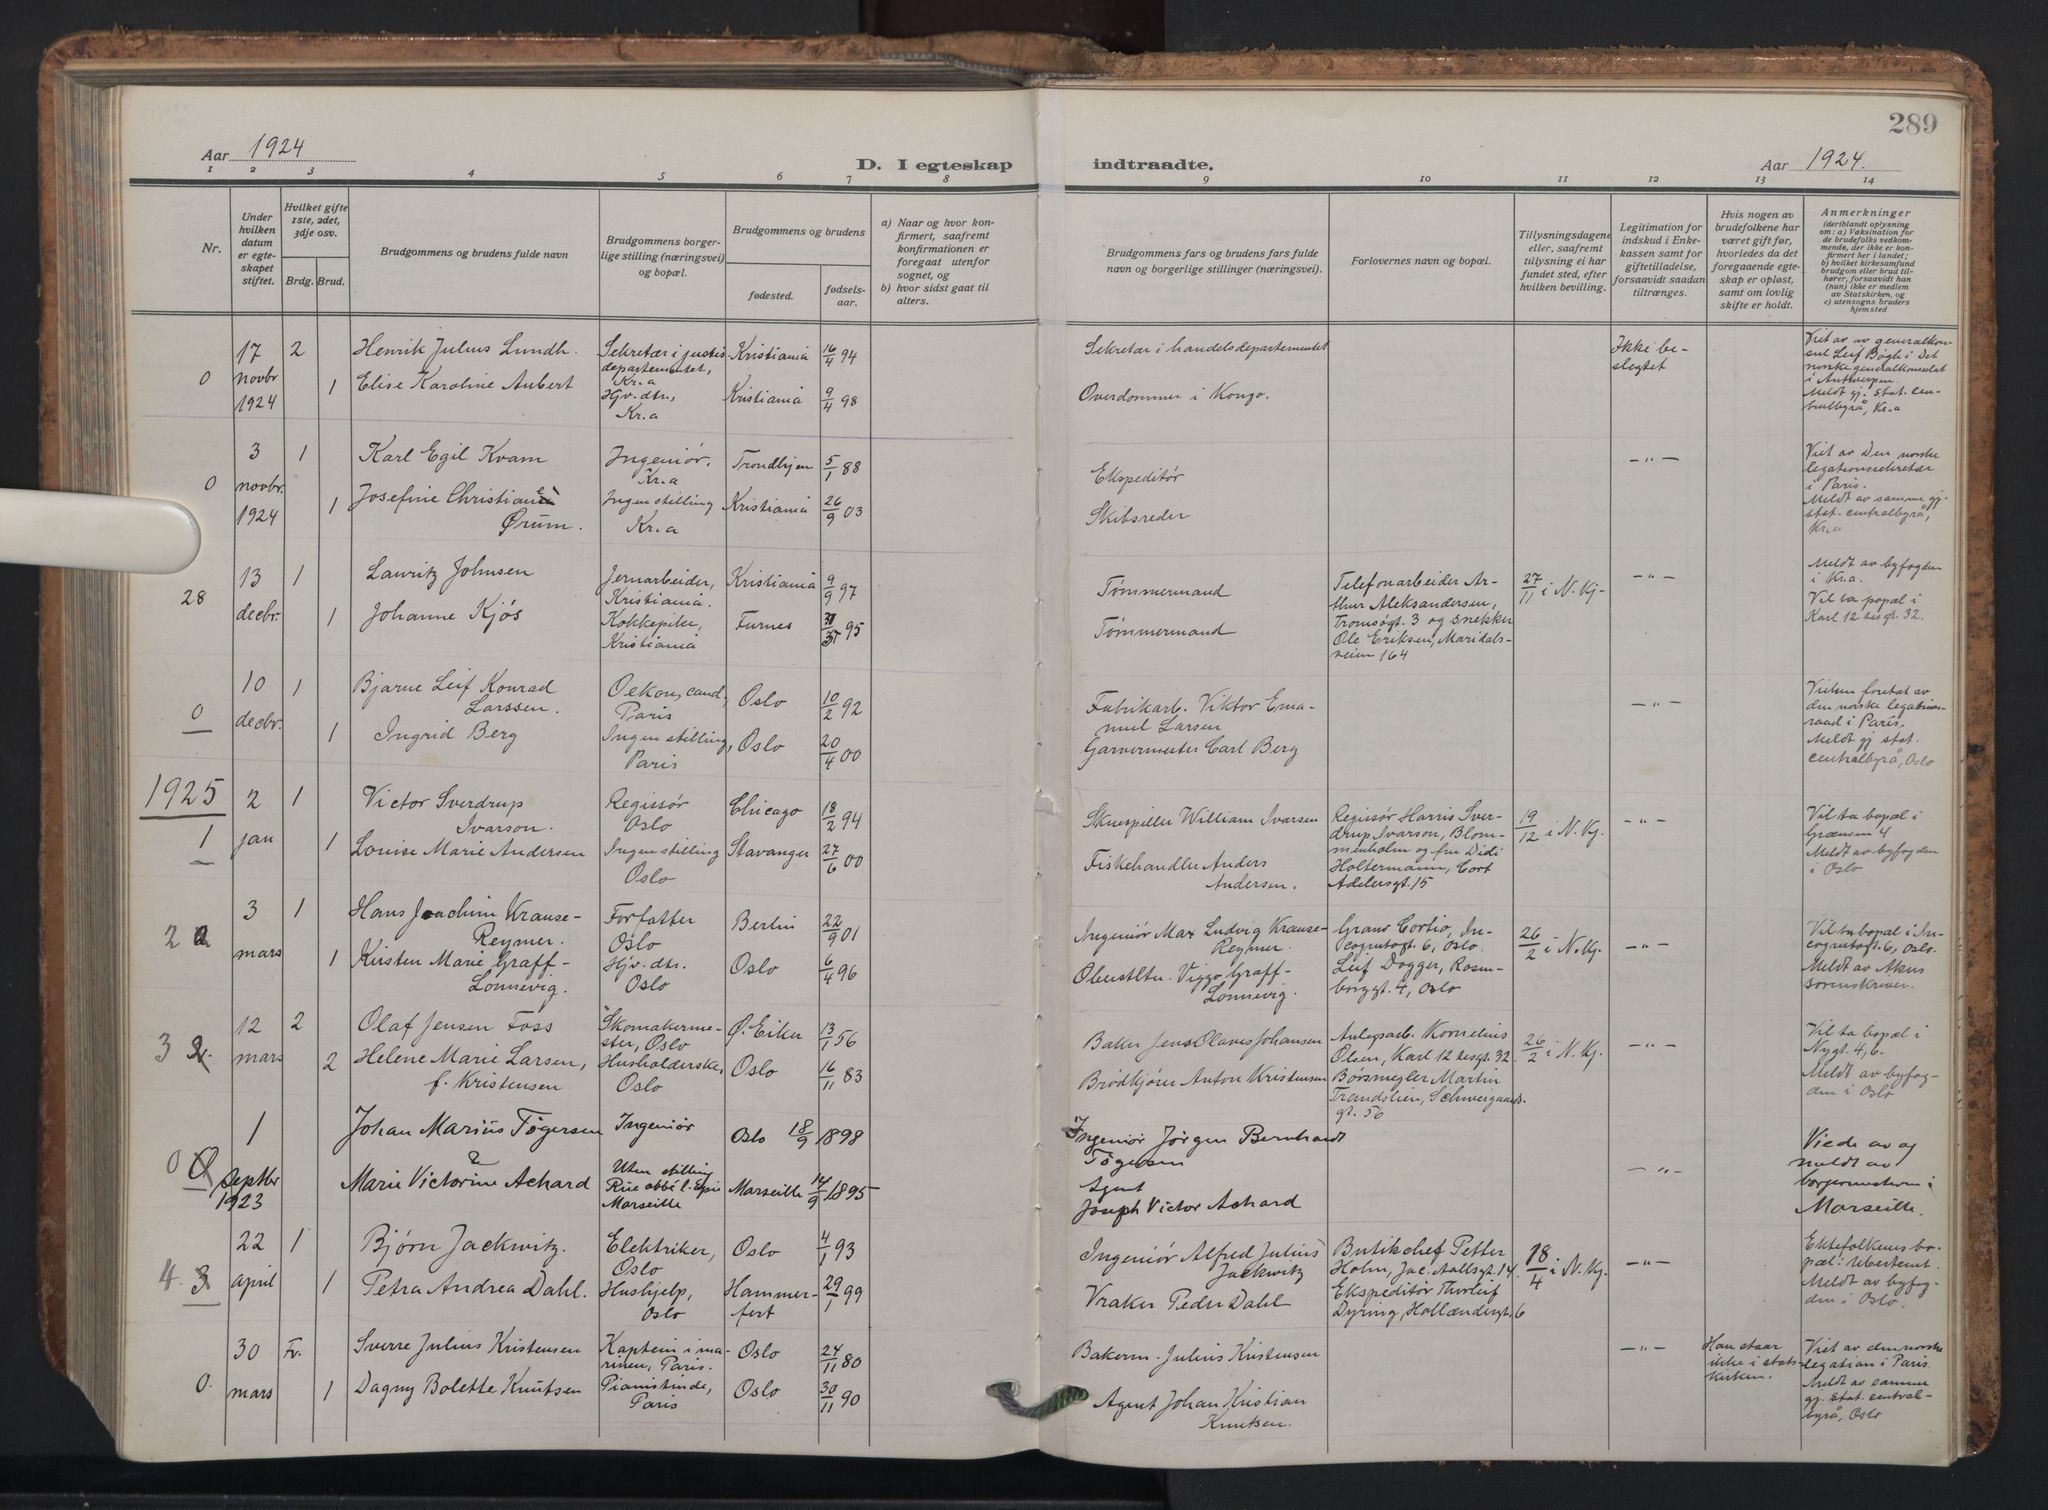 289
Aar 1924
D. I egteskap
indtraadte.
Aar 1924.
1 2 3 4 5 6 7 8 9 10 11 12 13 14
Nr.
Under hvilken datum er egteskapet stiftet.
Hvilket gifte 1ste, 2det, 3dje osv.
Brdg. Brud.
Brudgommens og brudens fulde navn
Brudgommens borgerlige stilling (næringsvei) og bopæl.
Brudgommens og brudens
fødested.
fødselsaar.
a) Naar og hvor konfirmert, saafremt konfirmationen er foregaat utenfor sognet, og
b) hvor sidst gaat til alters.
Brudgommens fars og brudens fars fulde navn og borgerlige stillinger (næringsvei).
Forlovernes navn og bopæl.
Tillysningsdagene eller, saafremt tillysning ei har fundet sted, efter hvilken bevilling.
Legitimation for indskud i Enkekassen samt for giftetilladelse, forsaavidt saadan tiltrænges.
Hvis nogen av brudefolkene har været gift før, hvorledes da det foregaaende egteskap er opløst, samt om lovlig skifte er holdt.
Anmerkninger (deriblandt oplysning om: a) Vaksination for de brudefolks vedkommende, der ikke er konfirmert her i landet; b) hvilket kirkesamfund brudgom eller brud tilhører, forsaavidt han (hun) ikke er medlem av Statskirken, og c) utensogns bruders hjemsted
0 17 novbr 1924
2 Henrik Julius Lundh.
Sekretær i justisdepartementet, Kr.a
Kristiania 16/4 94
Sekretær i handelsdepartementet
Ikke beslegtet
Viet av av generalkonsul Leif Bögh i Det norske generalkonsulat i Antwerpen.
Meldt gj. stat. centralbyrå, Kr.a
1 Elise Karoline Aubert
Hjv. dtr., Kr.a
Kristiania 9/4 98
Overdommer i Kongo.
0 3 novbr. 1924
1 Karl Egil Kvam
Ingeniør. Kr.a
Trondhjem 5/1 88
Ekspeditör
— „ —
Viet av Den norske legationssekretær i Paris.
Meldt av samme gj. stat. centralbyrå, Kr.a
1 Josefine Christiane Ørum.
Ingen stilling Kr.a
Kristiania 26/9 03
Skibsreder
28 13 decbr.
1 Lauritz Johnsen
Jernarbeider, Kristiania.
Kristiania 9/9 97
Tømmermand
Telefonarbeider Arthur Aleksandersen, Tromsøgt. 3 og snekker Ole Eriksen, Maridalsveien 164
27/11 i N. Kj.
— „ —
Meldt av byfogden i Kr.a.
Vil ta bopæl i Karl 12 tesgt. 32.
1 Johanne Kjøs
Kokkepike, Kristiania
Furnes 95
Tømmermand
0 10 decbr.
1 Bjarne Leif Konrad Larssen.
Oekon. cand, Paris
Oslo 10/2 92
Fabrikarb. Viktor Emanuel Larsen
— „ —
Vielsen foretat av den norske legationsraad i Paris.
Meldt gj stat. centralbyrå, Oslo
1 Ingrid Berg
Ingen stilling, Paris
Oslo 20/4 00
Garvermester Carl Berg
1925
1 2 jan
1 Victor Sverdrup Ivarson.
Regissør Oslo
Chicago 18/2 94
Skuespiller William Ivarsen
Regissør Harris Sverdrup Ivarson, Blommenholm og fru Didi Holtermann, Cort Adelersgt. 15
19/12 i N. Kj.
— „ —
Vil ta bopæl i Grænsen 4
Meldt av byfogden i Oslo
1 Louise Marie Andersen
Ingen stilling Oslo
Stavanger 27/6 00
Fiskehandler Anders Andersen.
2 3 mars
1 Hans Joachim Krause-Reymer.
Forfatter Oslo
Berlin 22/9 01
Ingeniør Max Ludvig Krause-Reymer.
Incognitogt. 6, Oslo.
Leif Dogger, Rosenborggt. 4, Oslo
26/2 i N. Kj.
— „ —
Vil ta bopæl i Incognitogt. 6, Oslo.
Meldt av Akers sorenskriver.
1 Kirsten Marie Graff-Lonnevig.
Hjv. dtr. Oslo
Oslo 6/4 96
Viggo Graff-Lonnevig.
3 12 mars
2 Olaf Jensen Foss
Skomakermester, Oslo
Ø. Eiker 13/1 56
Baker Jens Olaves Johansen
Anlegsarb. Kornelius Olsen, Karl 12 tesgt. 32.
Børsmegler Martin Trandslien, Schweigaardsgt. 56
26/2 i N. Kj.
— „ —
Vil ta bopæl i Nygt. 4, 6.
Meldt av byfogden i Oslo
2 Helene Marie Larsen, f. Kristensen
Husholderske, Oslo
Oslo 16/11 83
Brödkjörer Anton Kristensen
0 1 septbr 1923
Johan Marius Tögersen
Ingeniør
Oslo 18/9 1898
Ingeniør Jörgen Bernhardt Tögersen
— „ —
Viede av og meldt av borgermesteren i Marseille.
Marie Victorine Achard
Uten stilling
Rue abbé l'Epée Marseille
Marseille 14/9 1895
Agent Joseph Victor Achard
4. 3 22 april
1 Bjørn Jackwitz.
Elektriker, Oslo
Oslo 4/1 93
Ingeniör Alfred Julius Jackwitz
Butikchef Petter Holm, Jac. Aallsgt. 14.
Ekspeditör Thorleif Dyring, Hollændergt. 6
18/4 i N. Kj.
— „ —
Ektefolkenes bopæl: Ubestemt.
Meldt av byfogden i Oslo.
1 Petra Andrea Dahl.
Hushjelp, Oslo
Hammerfest 29/1 99
Vraker Peder Dahl
0. 30 mars
Fr. Sverre Julius Kristensen
Kaptein i marinen, Paris.
Oslo 24/11 80
Bakerm. Julius Kristensen
— „ —
Han staar ikke i statskirken.
Viet av den norske legation i Paris.
Meldt av samme gj. stat. centralbyrå, Oslo
1 Dagny Bolette Knutsen
Pianistinde, Paris
Oslo 30/11 90
Agent Johan Kristian Knutsen.